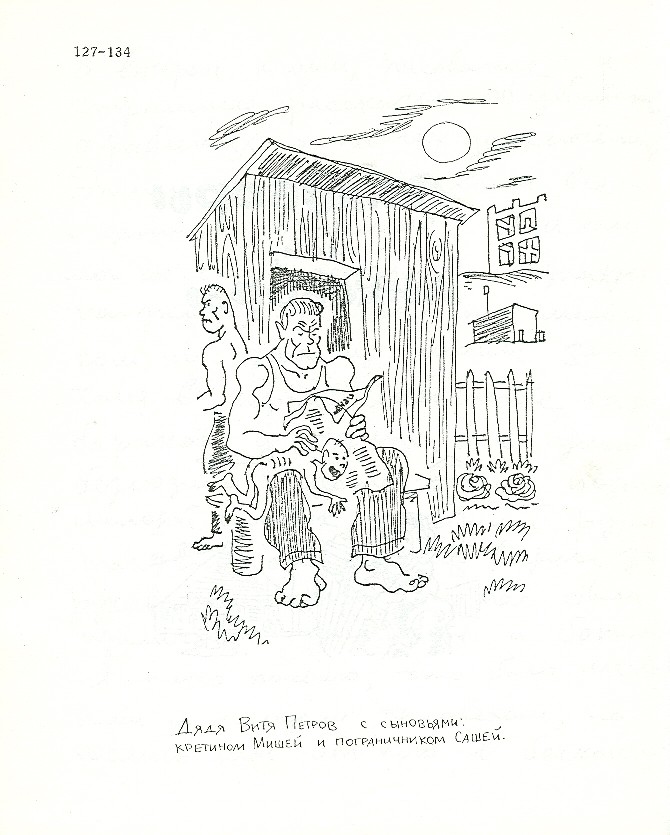 127-134
Дядя Витя Петров с сыновьями:
кретином Мишей и пограничником Сашей.